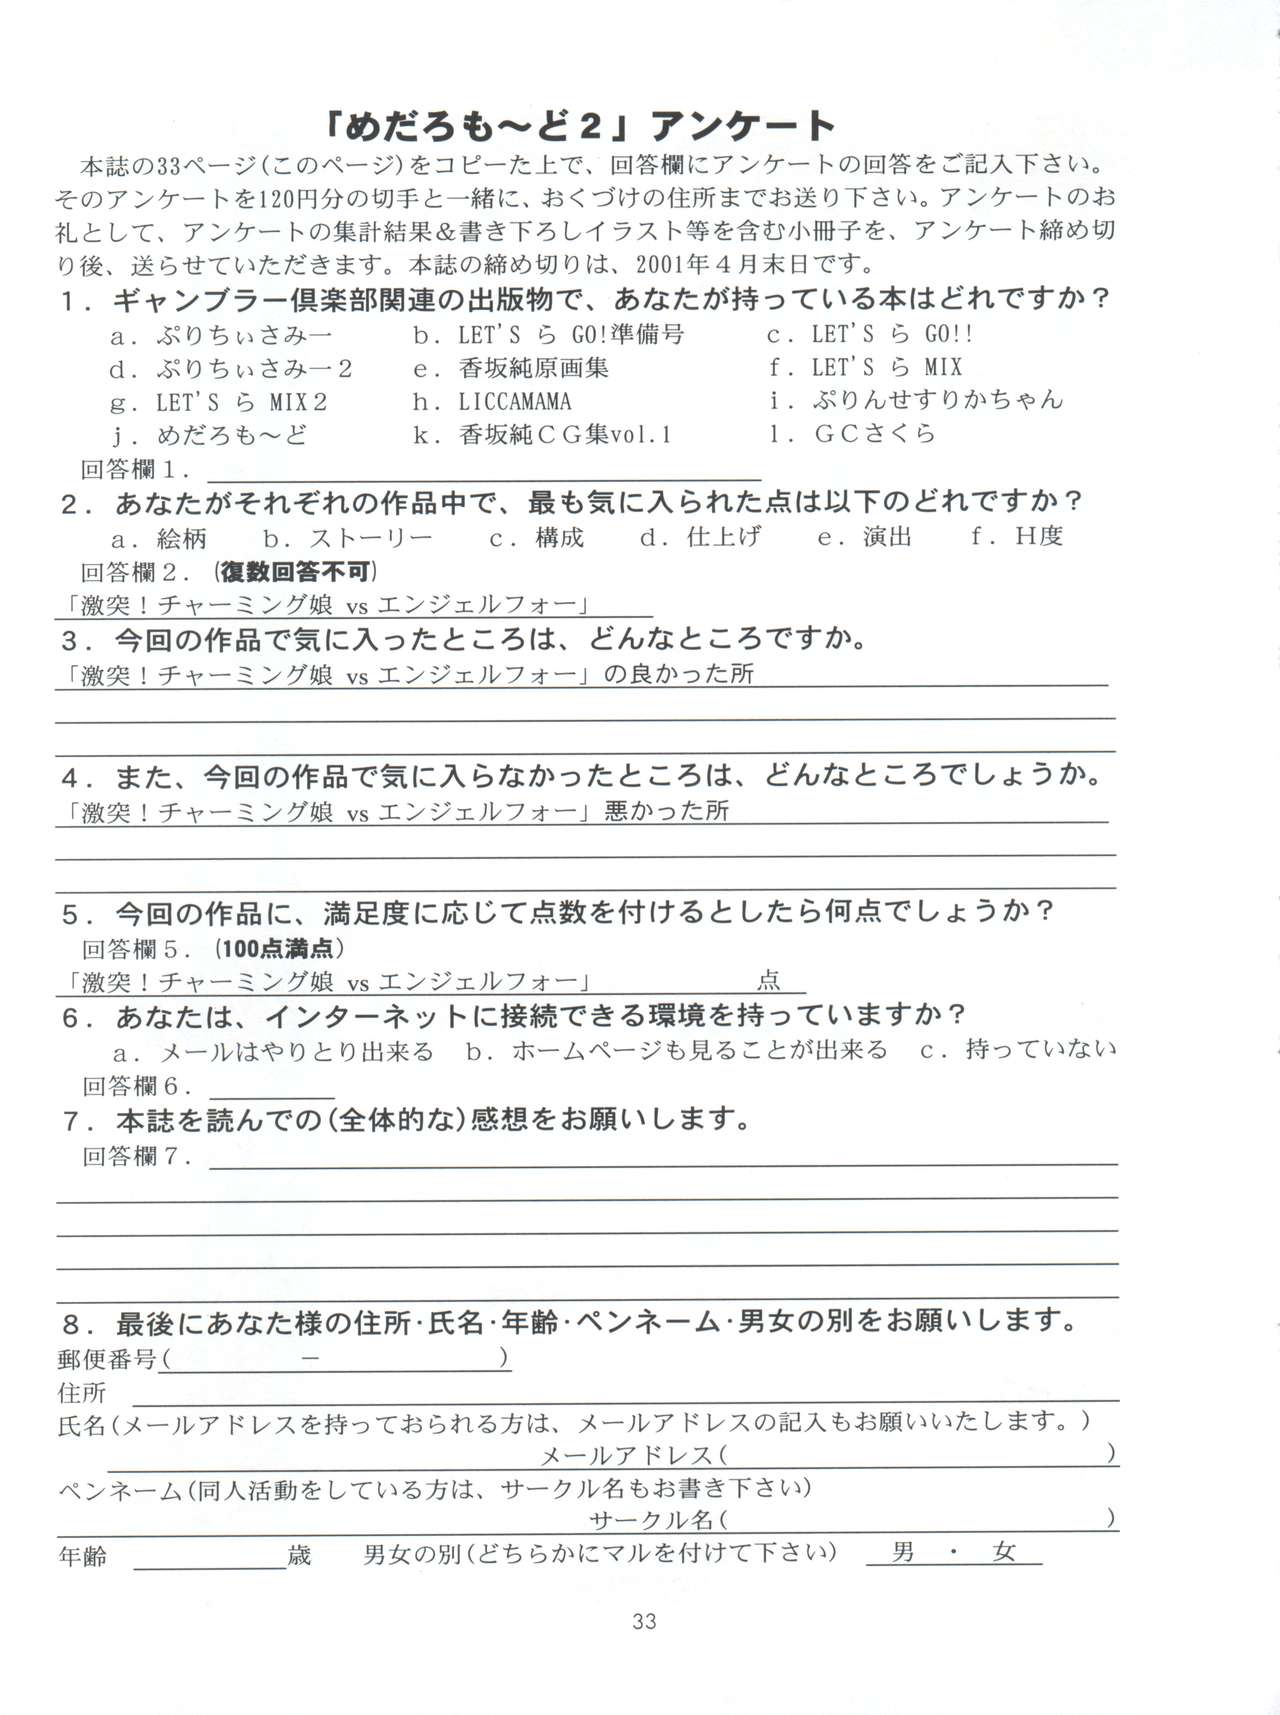 「めだろも～ど２」アンケート
本誌の33ページ(このページ)をコピーた上で、回答欄にアンケートの回答をご記入下さい。
そのアンケートを120円分の切手と一緒に、おくづけの住所までお送り下さい。アンケートのお
礼として、アンケートの集計結果＆書き下ろしイラスト等を含む小冊子を、アンケート締め切
り後、送らせていただきます。本誌の締め切りは、2001年４月末日です。
１．ギャンブラー倶楽部関連の出版物で、あなたが持っている本はどれですか？
ａ．ぷりちぃさみー　ｂ．LET'S ら GO!準備号　ｃ．LET'S ら GO!!
ｄ．ぷりちぃさみー２　ｅ．香坂純原画集　ｆ．LET'S ら MIX
ｇ．LET'S ら MIX２　ｈ．LICCAMAMA　ｉ．ぷりんせすりかちゃん
ｊ．めだろも～ど　ｋ．香坂純ＣＧ集vol.1　ｌ．ＧＣさくら
回答欄１．
２．あなたがそれぞれの作品中で、最も気に入られた点は以下のどれですか？
ａ．絵柄　ｂ．ストーリー　ｃ．構成　ｄ．仕上げ　ｅ．演出　ｆ．Ｈ度
回答欄２．(復数回答不可)
「激突！チャーミング娘 vs エンジェルフォー」
３．今回の作品で気に入ったところは、どんなところですか。
「激突！チャーミング娘 vs エンジェルフォー」の良かった所
４．また、今回の作品で気に入らなかったところは、どんなところでしょうか。
「激突！チャーミング娘 vs エンジェルフォー」悪かった所
５．今回の作品に、満足度に応じて点数を付けるとしたら何点でしょうか？
回答欄５．(100点満点)
「激突！チャーミング娘 vs エンジェルフォー」　点
６．あなたは、インターネットに接続できる環境を持っていますか？
ａ．メールはやりとり出来る　ｂ．ホームページも見ることが出来る　ｃ．持っていない
回答欄６．
７．本誌を読んでの(全体的な)感想をお願いします。
回答欄７．
８．最後にあなた様の住所･氏名･年齢･ペンネーム･男女の別をお願いします。
郵便番号(　－　)
住所
氏名(メールアドレスを持っておられる方は、メールアドレスの記入もお願いいたします。)
メールアドレス(　)
ペンネーム(同人活動をしている方は、サークル名もお書き下さい)
サークル名(　)
年齢　歳　男女の別(どちらかにマルを付けて下さい)　男　・　女
33